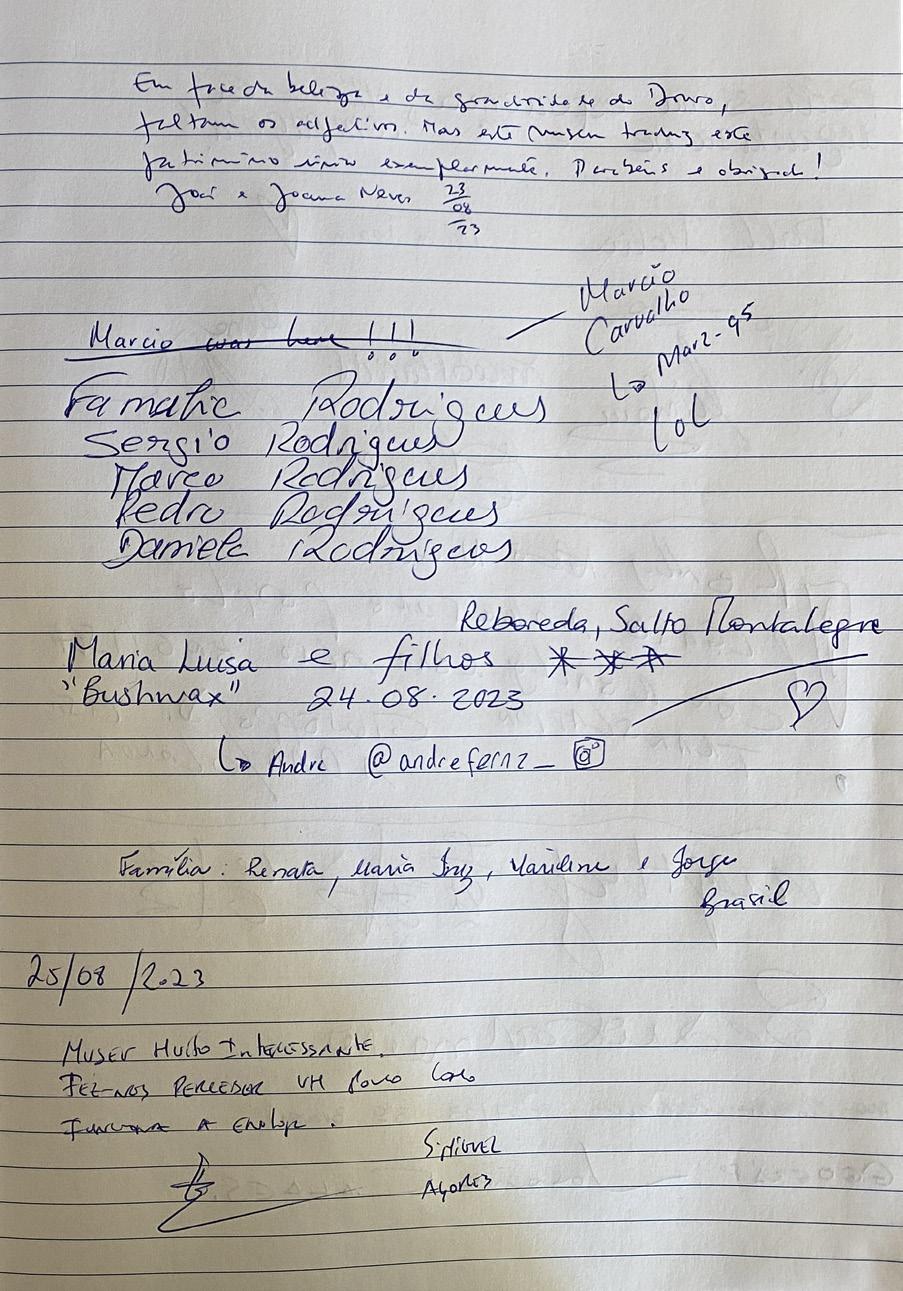 Em face da beleza e da grandiosidade do Douro,
faltam os adjectivos. Mas este museu traduz este
património único exemplarmente. Parabéns e obrigado!
José e Joana Neves 23/08/23
Marcio was here !!!
Marcio
Carvalho
↳ Mar2-95
lol
Rodrigues
Sergio Rodrigues
Marco Rodrigues
Pedro Rodrigues
Daniela Rodrigues
Reboreda, Salto Montalegre
Maria Luisa e filhos ***
"Bushwax" 24.08.2023
♡
↳ Andre @andrefernz_
Família: Renata, Maria e Jorge
Brasil
25/08/2023
Museu Muito Interessante.
Fez-nos perceber um pouco como
funciona a enologia.
S. Miguel
Açores